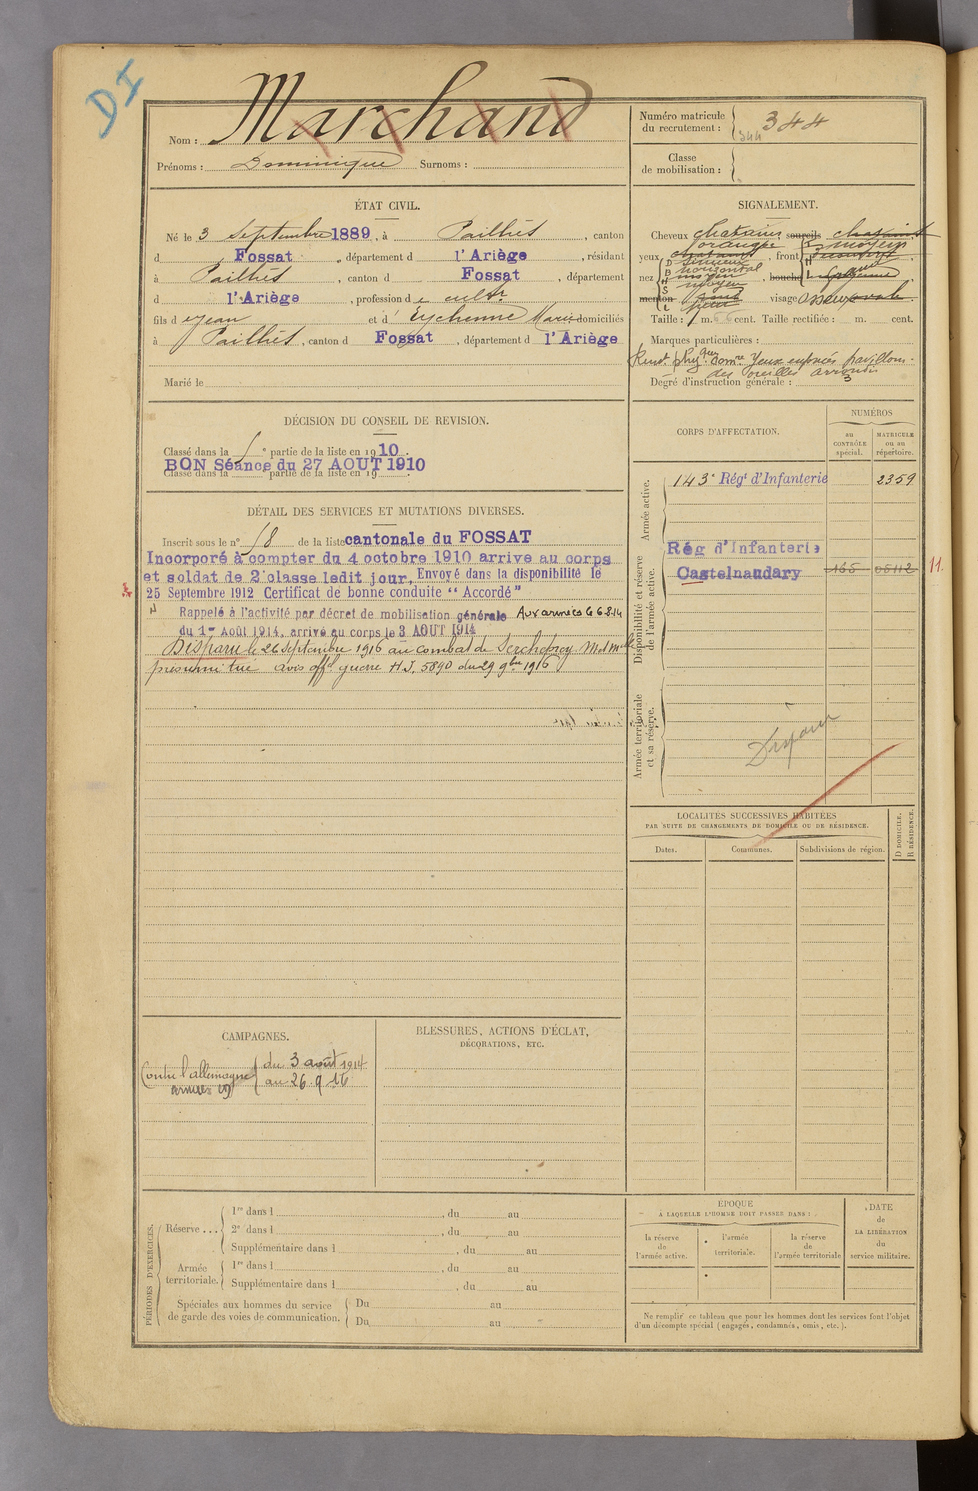 DI
Nom : Marchand
Prénoms : Dominique Surnoms :
Numéro matricule du recrutement : 344
344
Classe de mobilisation :
ÉTAT CIVIL.
Né le 3 Septembre 1889, à Pailhès, canton
d Fossat, département d l'Ariège, résidant
à Pailhès, canton d Fossat, département
d l'Ariège, profession de cultr
fils de Jean et d' Eychenne Marie domiciliés
à Pailhès, canton d Fossat, département d l'Ariège
Marié le
SIGNALEMENT.
Cheveux chatains, sourcils chatains
orangée moyen
yeux chatains, front
sinueux
horizontal
nez moyen, bouche moyenne
moyen
menton rond visage osseux ovale
Taille : 1 m. 66 cent. Taille rectifiée : m. cent.
Marques particulières :
Rens. phy. ques comre Yeux enfoncés pavillons
des oreilles arrondis
Degré d'instruction générale : 3
DÉCISION DU CONSEIL DE REVISION.
Classé dans la 1e partie de la liste en 1910.
BON Séance du 27 AOUT 1910
Classé dans la partie de la liste en 19
DÉTAIL DES SERVICES ET MUTATIONS DIVERSES.
Inscrit sous le n° 18 de la liste cantonale du FOSSAT
Incorporé à compter du 4 octobre 1910 arrivé au corps
et soldat de 2e classe ledit jour. Envoyé dans la disponibilité le
25 Septembre 1912 Certificat de bonne conduite “ Accordé ”
Rappelé à l'activité par décret de mobilisation générale Aux armées le 6 8.14
du 1er Août 1914, arrivé au corps le 3 AOUT 1914
Disparu le 26 Septembre 1916 au combat de
présumé tué avis offel guerre H.J. 5890 du 29 9bre 1916
CORPS D'AFFECTATION.
NUMÉROS
au CONTRÔLE spécial.
MATRICULE ou au répertoire.
Armée active.
143e Régt d'Infanterie 2359
Disponibilité et réserve de l'armée active.
Rég d'Infanterie
Castelnaudary 165 05112
11.
Armée territoriale et sa réserve.
Disparu
LOCALITÉS SUCCESSIVES HABITÉES
PAR SUITE DE CHANGEMENTS DE DOMICILE OU DE RÉSIDENCE.
Dates. Communes. Subdivisions de région. D DOMICILE. R RÉSIDENCE.
CAMPAGNES.
Contre l'allemagne du 3 août 1914
au 26.9.16
BLESSURES, ACTIONS D'ÉCLAT,
DÉCORATIONS, ETC.
PÉRIODES D'EXERCICES.
Réserve ... 1re dans l , du au
2e dans l , du au
Supplémentaire dans l , du au
Armée territoriale. 1re dans l , du au
Supplémentaire dans l , du au
Spéciales aux hommes du service de garde des voies de communication. Du au
Du au
ÉPOQUE
À LAQUELLE L'HOMME DOIT PASSER DANS :
la réserve de l'armée active.
l'armée territoriale.
la réserve de l'armée territoriale
DATE de LA LIBÉRATION du service militaire.
Ne remplir ce tableau que pour les hommes dont les services font l'objet
d'un décompte spécial (engagés, condamnés, omis, etc.).